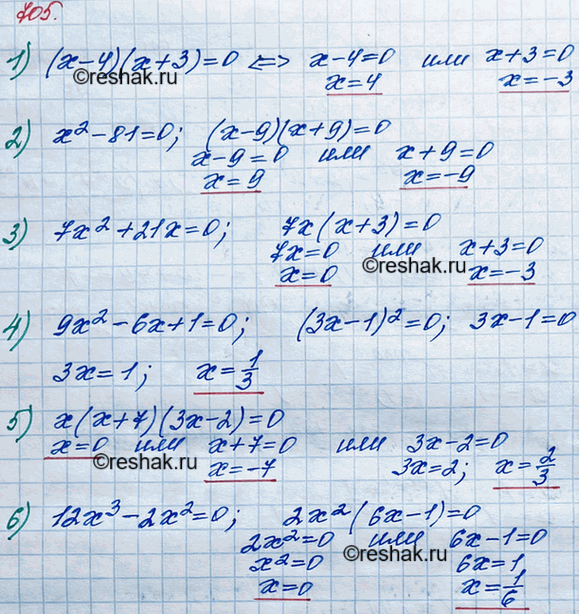 705.
1) (x-4)(x+3)=0 <=> x-4=0 или x+3=0
©reshak.ru x=4 x=-3 ©reshak.ru
2) x²-81=0; (x-9)(x+9)=0
x-9=0 или x+9=0
x=9 x=-9
3) 7x²+21x=0; 7x(x+3)=0
7x=0 или x+3=0
x=0 ©reshak.ru x=-3
4) 9x²-6x+1=0; (3x-1)²=0; 3x-1=0
3x=1; x=1/3
5) x(x+7)(3x-2)=0
x=0 или x+7=0 или 3x-2=0
©reshak.ru x=-7 3x=2; x=2/3
6) 12x³-2x²=0; 2x²(6x-1)=0
2x²=0 или 6x-1=0
x²=0 ©reshak.ru 6x=1
x=0 x=1/6